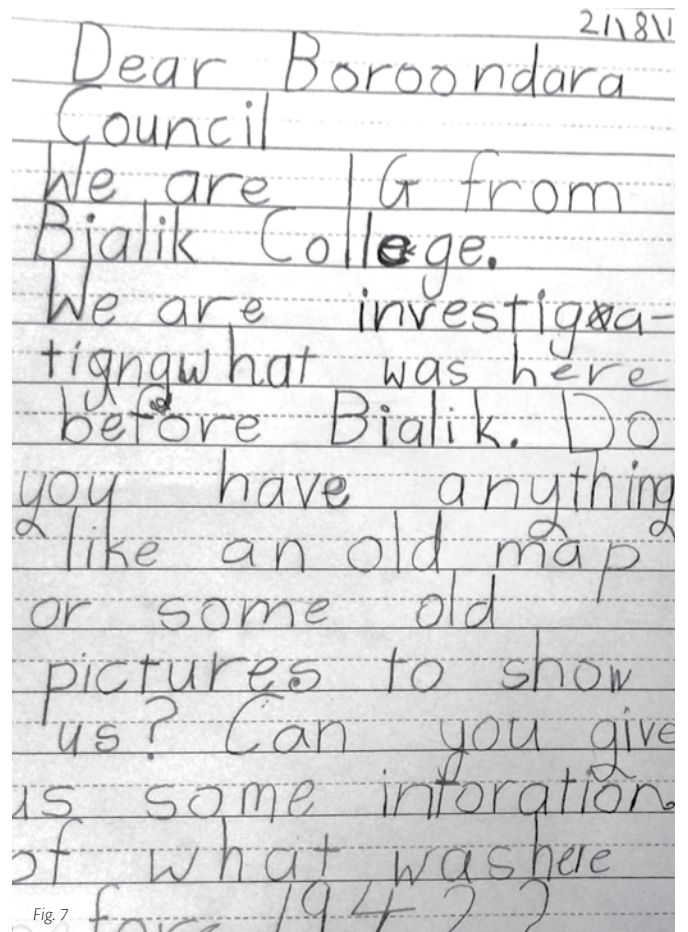 21\8\1
Dear Boroondara
Council
We are 1G from
Bialik College.
We are investiga-
tigngwhat was here
before Bialik. Do
you have anything
like an old map
or some old
pictures to show
us? Can you give
us some inforation
of what washere
Fig. 7